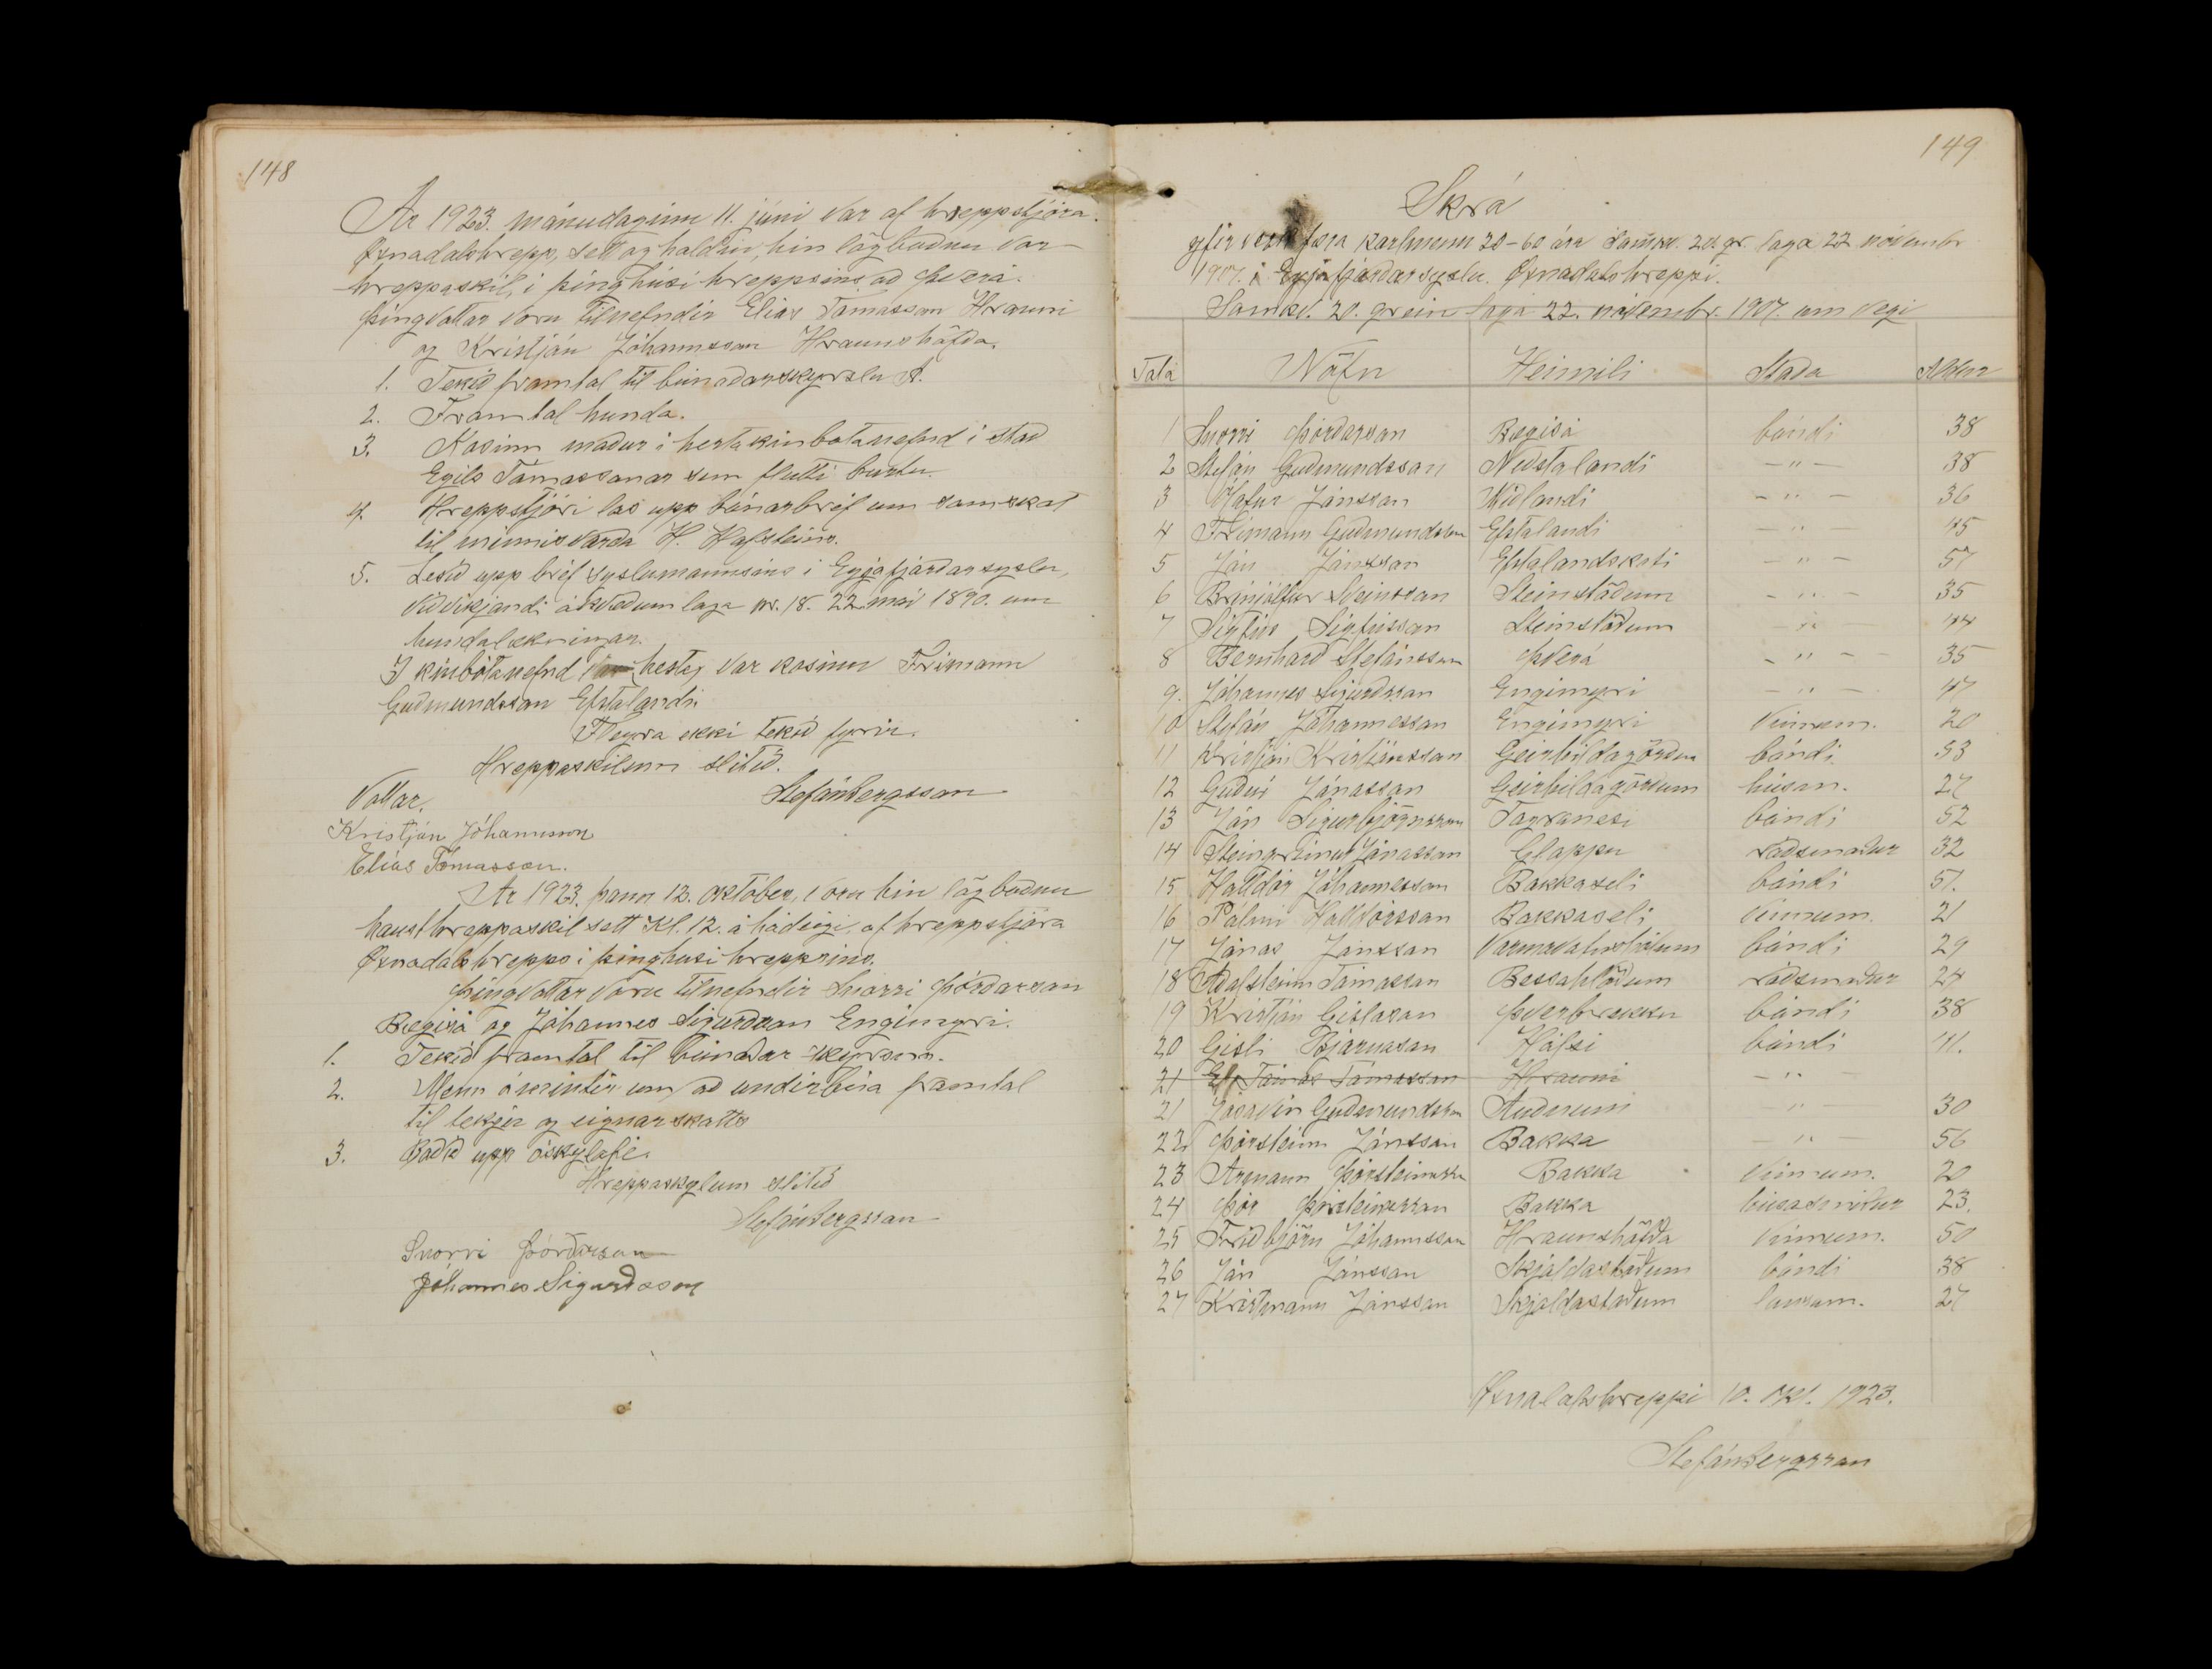 148
Ár 1923. mánudaginn 11. júní var af hreppstjóra
Öxnadalshrepp, sett og haldið, hin lögboðnu vor-
hreppaskil, í þinghúsi hreppsins að Þverá.
Þingvottar voru tilnefndir Elías Tómasson Hrauni
og Kristján Jóhannsson Hraunshöfða.
1. Tekið framtal til búnaðarskyrslu A.
2. Framtal hunda.
3. Kosinn maður í hestakinbotanefnd í stað
Egils Tómassonar sem flutti burtu.
4. Hreppstjóri las upp bónarbréf um samskot
til minnisvarða H. Hafsteins.
5. Lesið upp bréf syslumannsins í Eyjafjarðarsyslu,
viðvikjandi ákvæðum laga nr. 18. 22 maí 1890. um
hundalækningar.
Í kinbótanefnd hesta, var kosinn Frímann
Guðmundsson Efstalandi.
Fleyra ekki tekið fyrir.
Hreppaskilum slitið.
Stefán Bergsson
Vottar.
Kristján Jóhannsson
Elías Tómasson.
Ár 1923. þann 12. október, voru hin lögboðnu
hausthreppaskil sett Kl. 12. á hádegi. af hreppstjóra
Öxnadalshrepps í þinghusi hreppsins.
Þingvottar voru tilnefndir Snorri Þórðarson
Bægisá og Jóhannes Sigurðsson Engimyri.
1. Tekið framtal til búnaðar skyrslu.
2. Menn ámintir um að undirbúa framtal
til tekju og eignarskatts
3. Boðið upp óskylafé.
Hreppaskylum slitið
Stefán Bergsson
Snorri Þórðarson
Jóhannes Sigurðsson
149
Skrá
yfir verkfæra karlmenn 20-60 ára samkv. 20. gr. laga 22 nóvembr
1907. í Eyjafjarðarsyslu. Öxnadalshreppi.
Samkv. 20. grein laga 22. nóvembr. 1907. um vegi
Tala Nöfn Heimili Staða Aldur
1 Snorri Þórðarson Bægisá bóndi 38
2 Stefán Guðmundsson Neðstalandi -"- 38
3 Ólafur Jónsson Miðlandi -"- 36
4 Frímann Guðmundsson Efstalandi -"- 45
5 Jón Jónsson Efstalandskoti -"- 57
6 Brinjólfur Sveinsson Steinstöðum -"- 35
7 Sigfús Sigfússon Steinstöðum -"- 44
8 Bernharð Stefánsson Þverá -"- 35
9. Jóhannes Sigurðsson Engimyri -"- 47
10 Stefán Jóhannesson Engimyri Vinnum. 20
11 Kristján Kristjánsson Geirhildagörðum bóndi 53
12 Guðni Jónasson Geirhildagörðum húsm. 27
13 Jón Sigurbjörnsson Fagranesi bóndi 52
14 Steingrímur Jónasson Gloppu ráðsmaður 32
15 Halldór Jóhannesson Bakkaseli bóndi 51.
16 Pálmi Halldórsson Bakkaseli Vinnum. 21
17 Jónas Jónsson Varmavatnshólum bóndi 29
18 Aðalsteinn Tómasson Bessahlöðum ráðsmaður 24
19 Kristján Gíslason Þverbrekku bóndi 38
20 Gísli Bjarnason Hálsi bóndi 41.
21 Tómas Tómasson Hrauni -"-
21 Jósavin Guðmundsson Auðnum -"- 30
22 Þórsteinn Jónsson Bakka -"- 56
23 Armann Þórsteinsson Bakka Vinnum. 20
24 Þór Þórsteinsson Bakka búsasmiður 23.
25 Friðbjörn Jóhannsson Hraunshöfða Vinnum. 50
26 Jón Jónsson Skjaldastöðum bóndi 38
27 Kristmann Jónsson Skjaldastöðum lausam. 27
Öxnadalshreppi 10. okt. 1923.
Stefán Bergsson